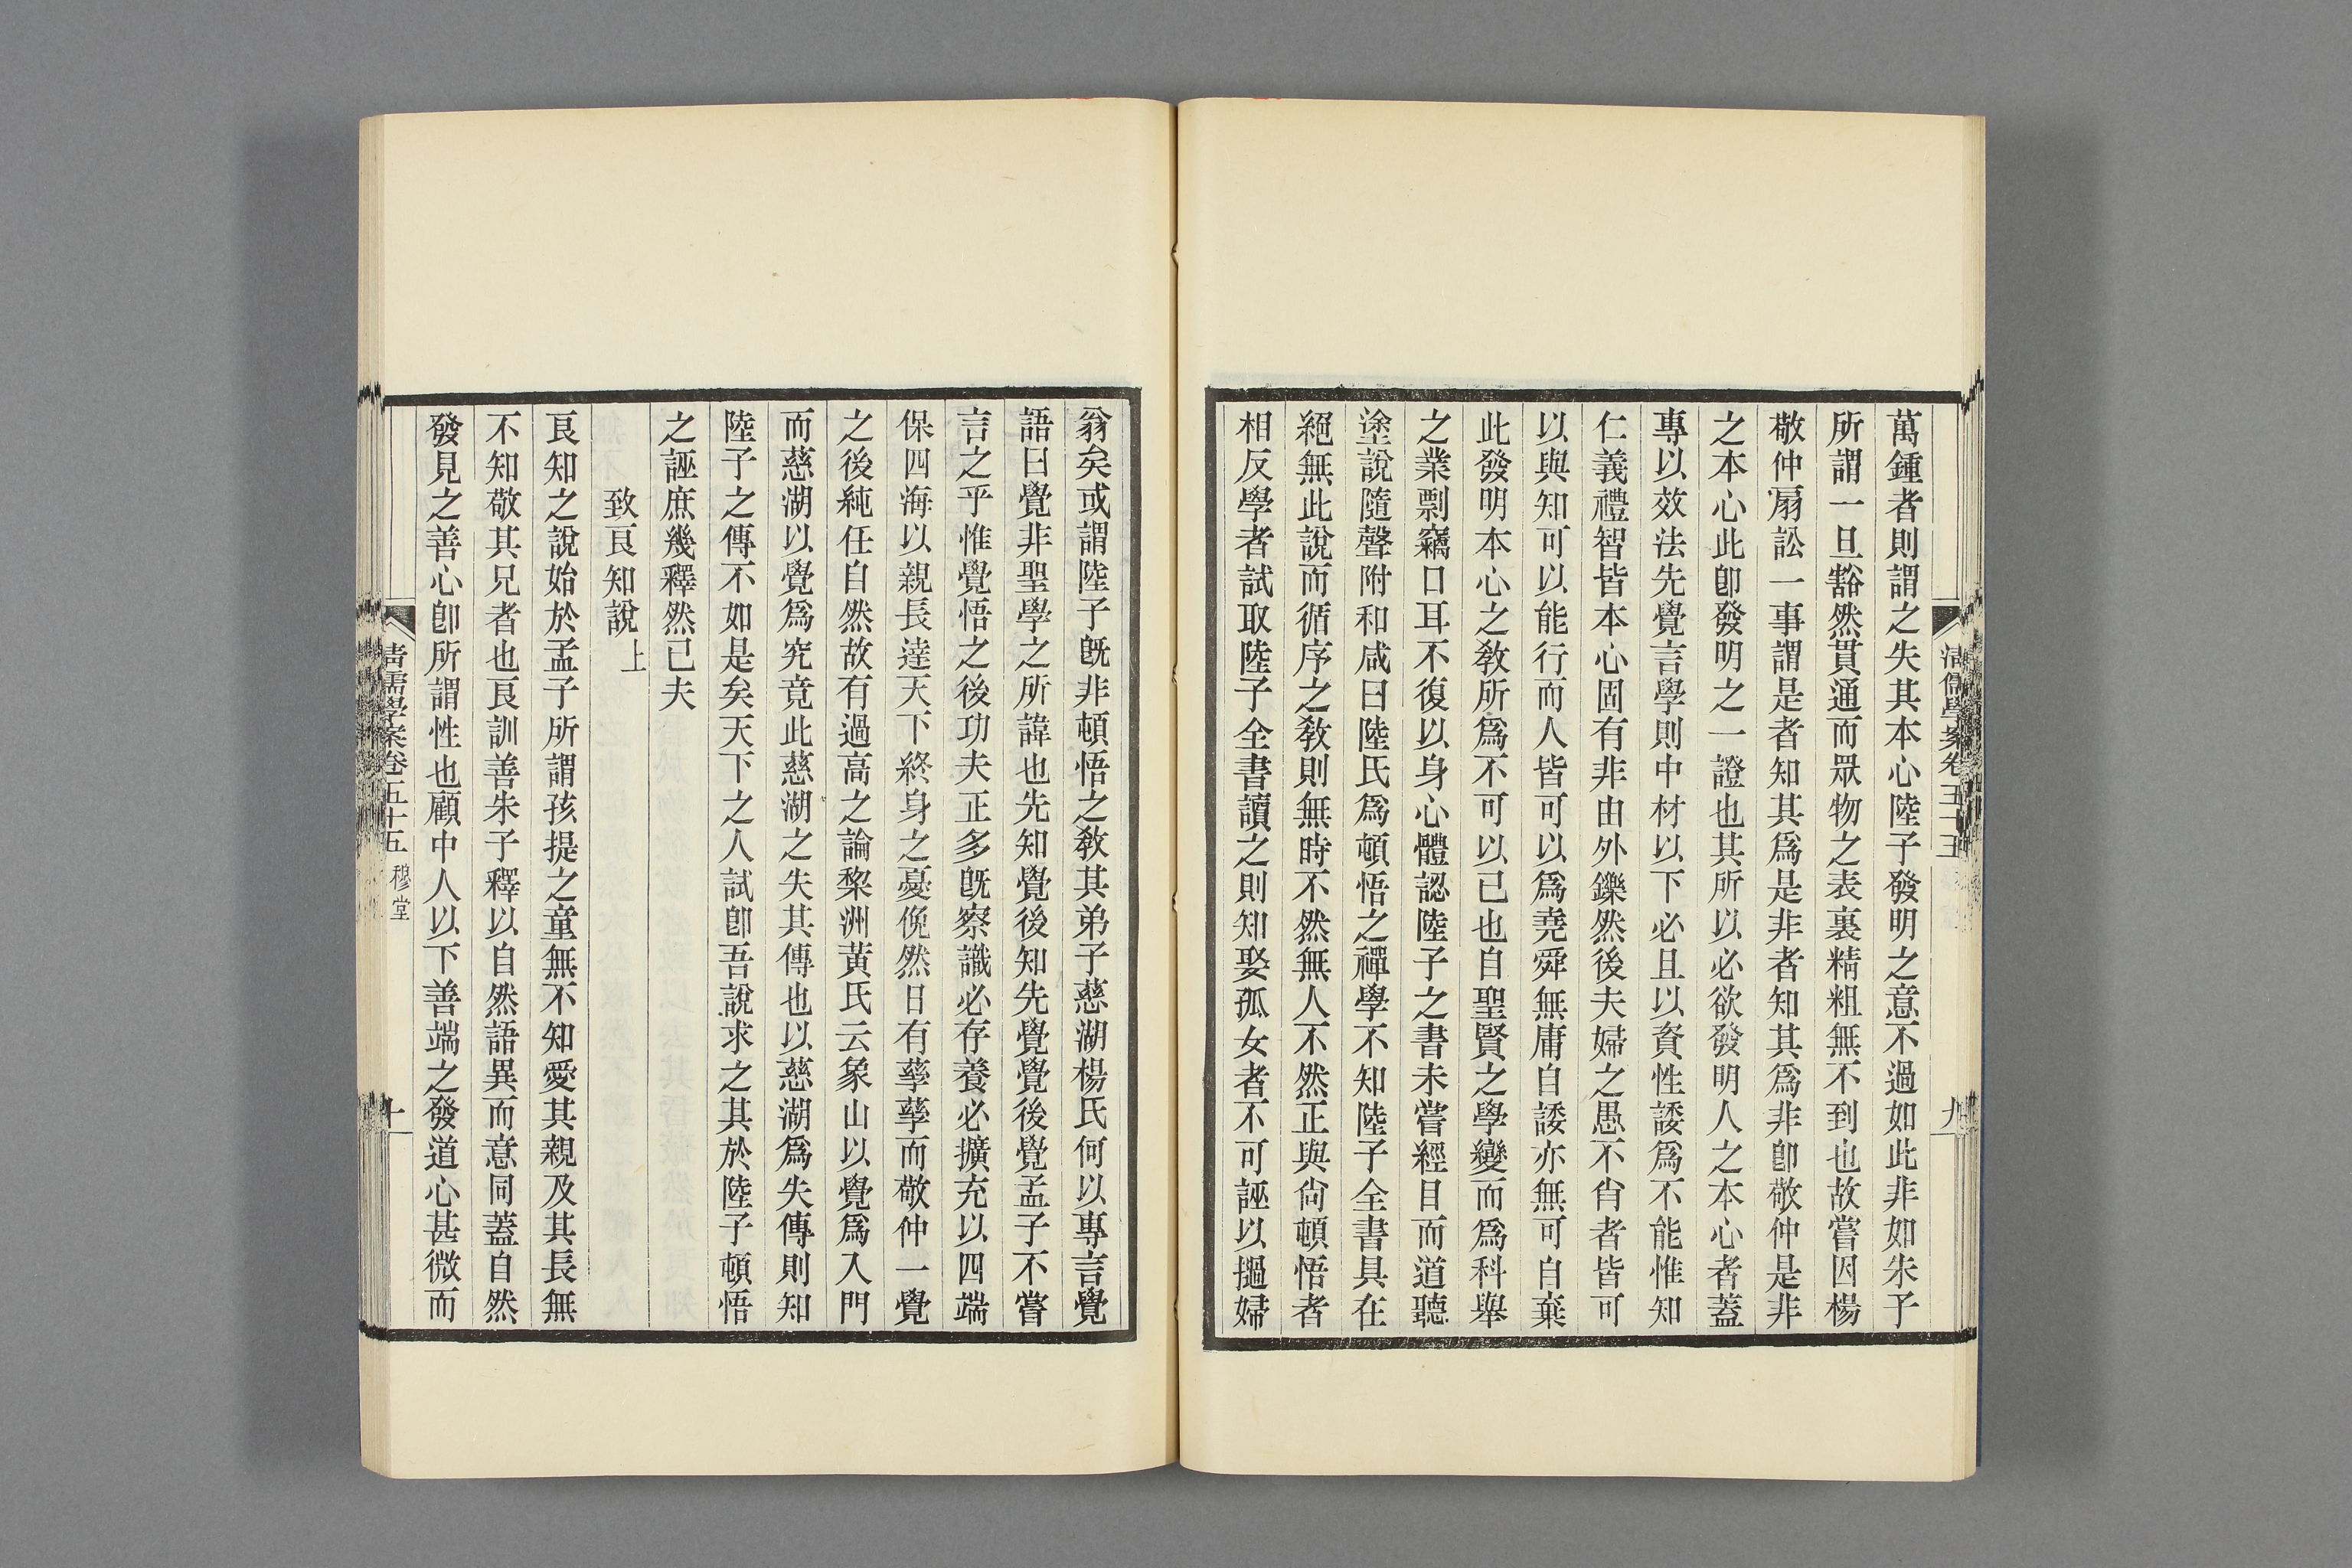 萬鍾者則謂之失其本心陸子發明之意不過如此非如朱子
所謂一旦豁然貫通而眾物之表裏精粗無不到也故嘗因楊
敬仲扇訟一事謂是者知其爲是非者知其爲非卽敬仲是非
之本心此卽發明之一證也其所以必欲發明人之本心者蓋
專以效法先覺言學則中材以下必且以資性諉爲不能惟知
仁義禮智皆本心固有非由外鑠然後夫婦之愚不肖者皆可
以與知可以能行而人皆可以爲堯舜無庸自諉亦無可自棄
此發明本心之敎所爲不可以已也自聖賢之學變而爲科舉
之業剽竊口耳不復以身心體認陸子之書未嘗經目而道聽
塗說隨聲附和咸曰陸氏爲頓悟之禪學不知陸子全書具在
絕無此說而循序之敎則無時不然無人不然正與尙頓悟者
相反學者試取陸子全書讀之則知娶孤女者不可誣以撾婦
清儒學案卷五十五
九
翁矣或謂陸子旣非頓悟之敎其弟子慈湖楊氏何以專言覺
語曰覺非聖學之所諱也先知覺後知先覺覺後覺孟子不嘗
言之乎惟覺悟之後功夫正多旣察識必存養必擴充以四端
保四海以親長達天下終身之憂俛然日有孳孳而敬仲一覺
之後純任自然故有過高之論黎洲黃氏云象山以覺爲入門
而慈湖以覺爲究竟此慈湖之失其傳也以慈湖爲失傳則知
陸子之傳不如是矣天下之人試卽吾說求之其於陸子頓悟
之誣庶幾釋然已夫
致良知說上
良知之說始於孟子所謂孩提之童無不知愛其親及其長無
不知敬其兄者也良訓善朱子釋以自然語異而意同蓋自然
發見之善心卽所謂性也顧中人以下善端之發道心甚微而
清儒學案卷五十五 穆堂
十